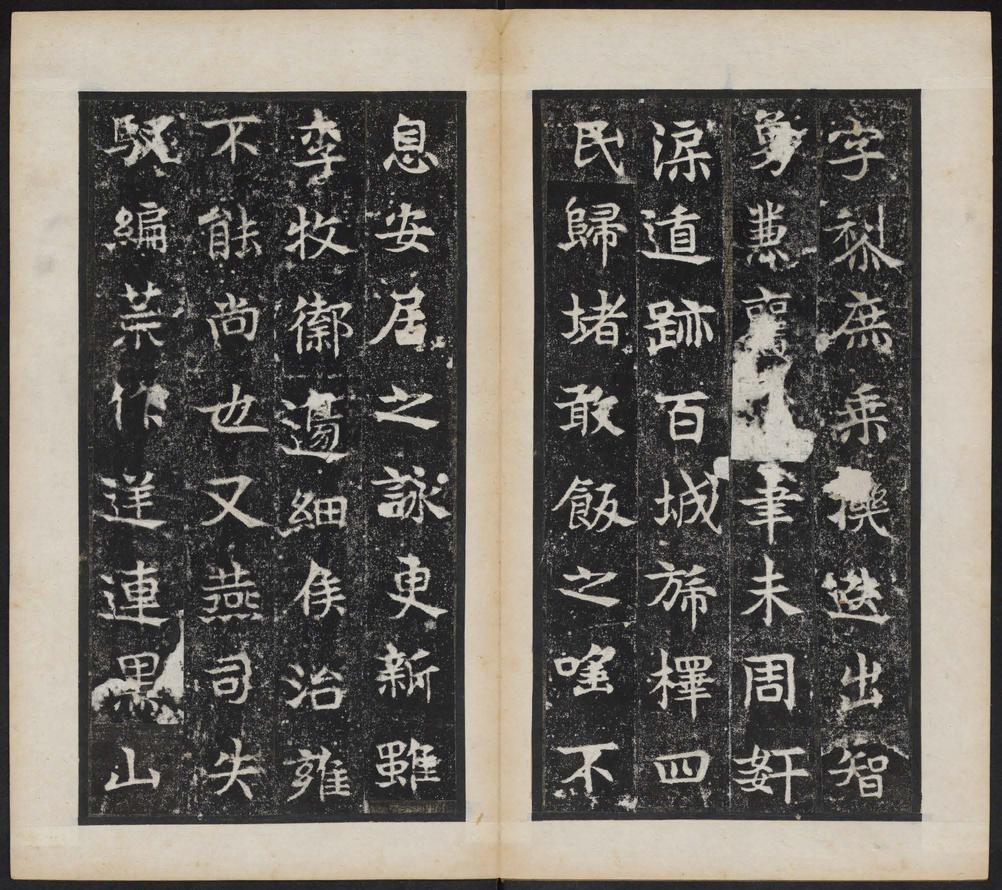 字黎庶乗迭出智
勇兼筆未周奸
深遁跡百城旆檡四
民歸堵敢飯之唯不
息安居之詠更新雖
李牧禦邊細侯治雍
不能尚也又燕司失
馭編作逆連黑山